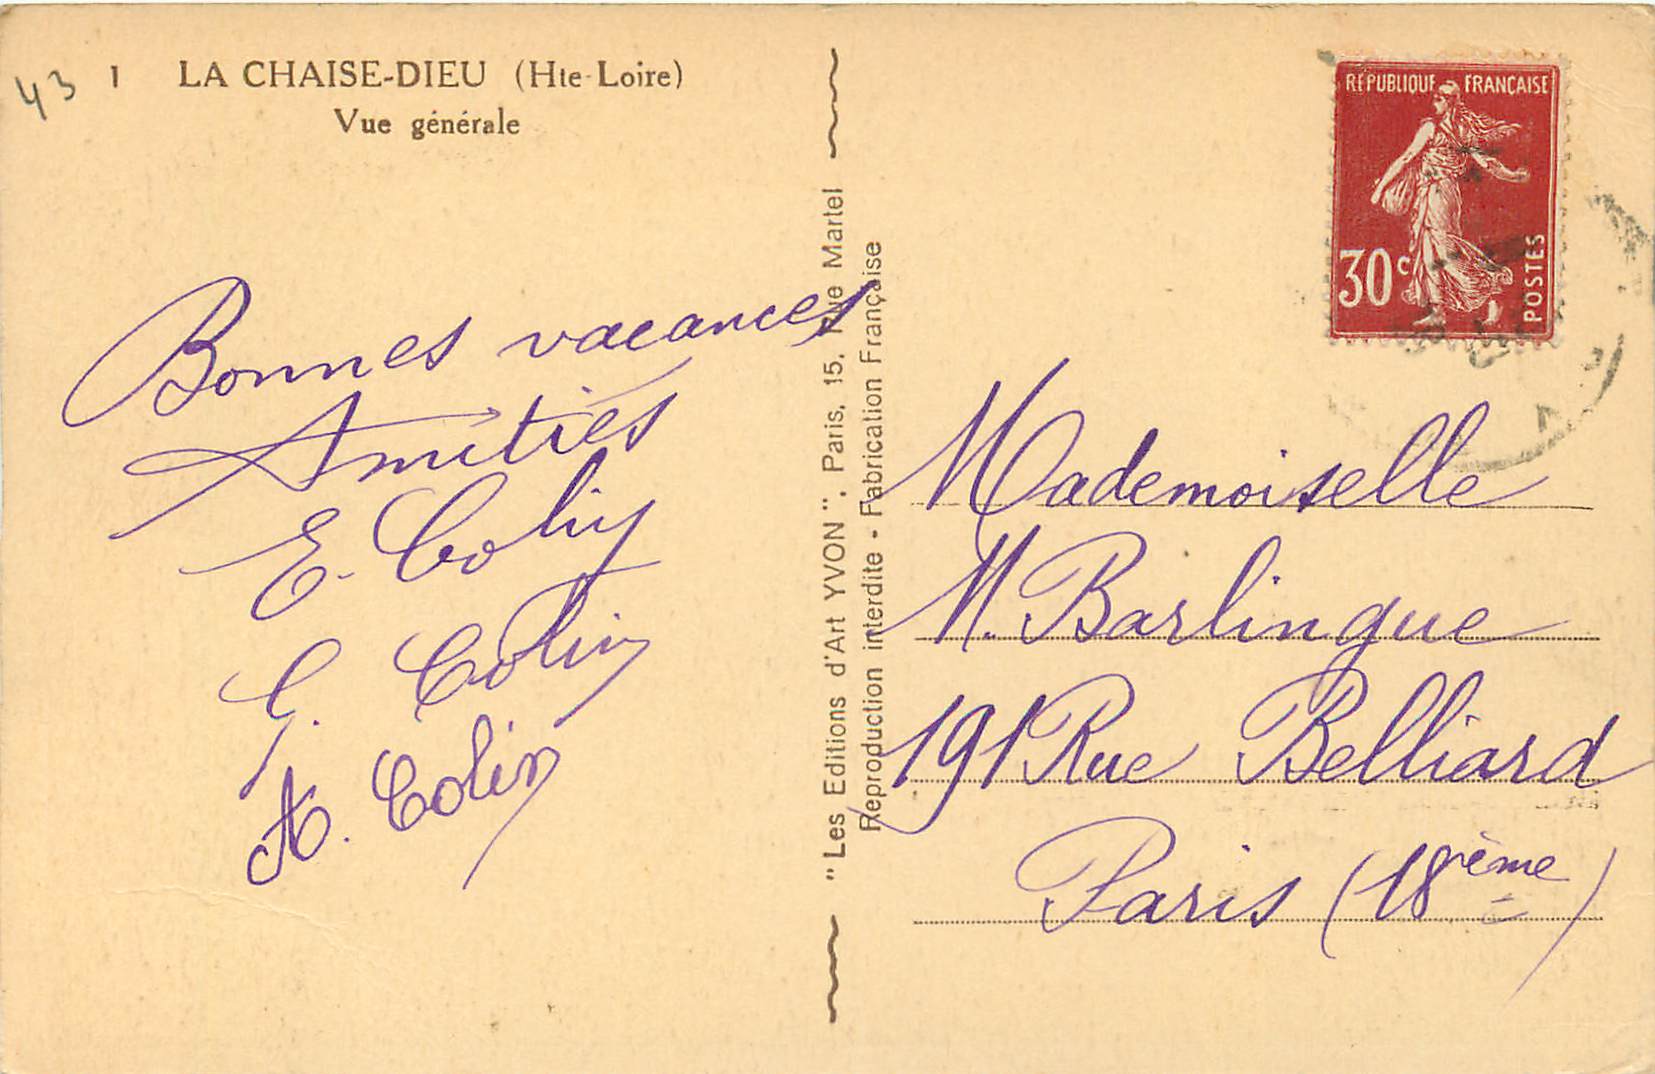 43 1 LA CHAISE-DIEU (Hte-Loire)
Vue générale
Bonnes vacances
Amitiés
E. Colin
G. Colin
A. Colin
"Les Editions d'Art YVON", Paris, 15, Rue Martel
Reproduction interdite - Fabrication Française
RÉPUBLIQUE FRANÇAISE
30c
POSTES
Mademoiselle
M. Barlingue
191 Rue Belliard
Paris (18ème)